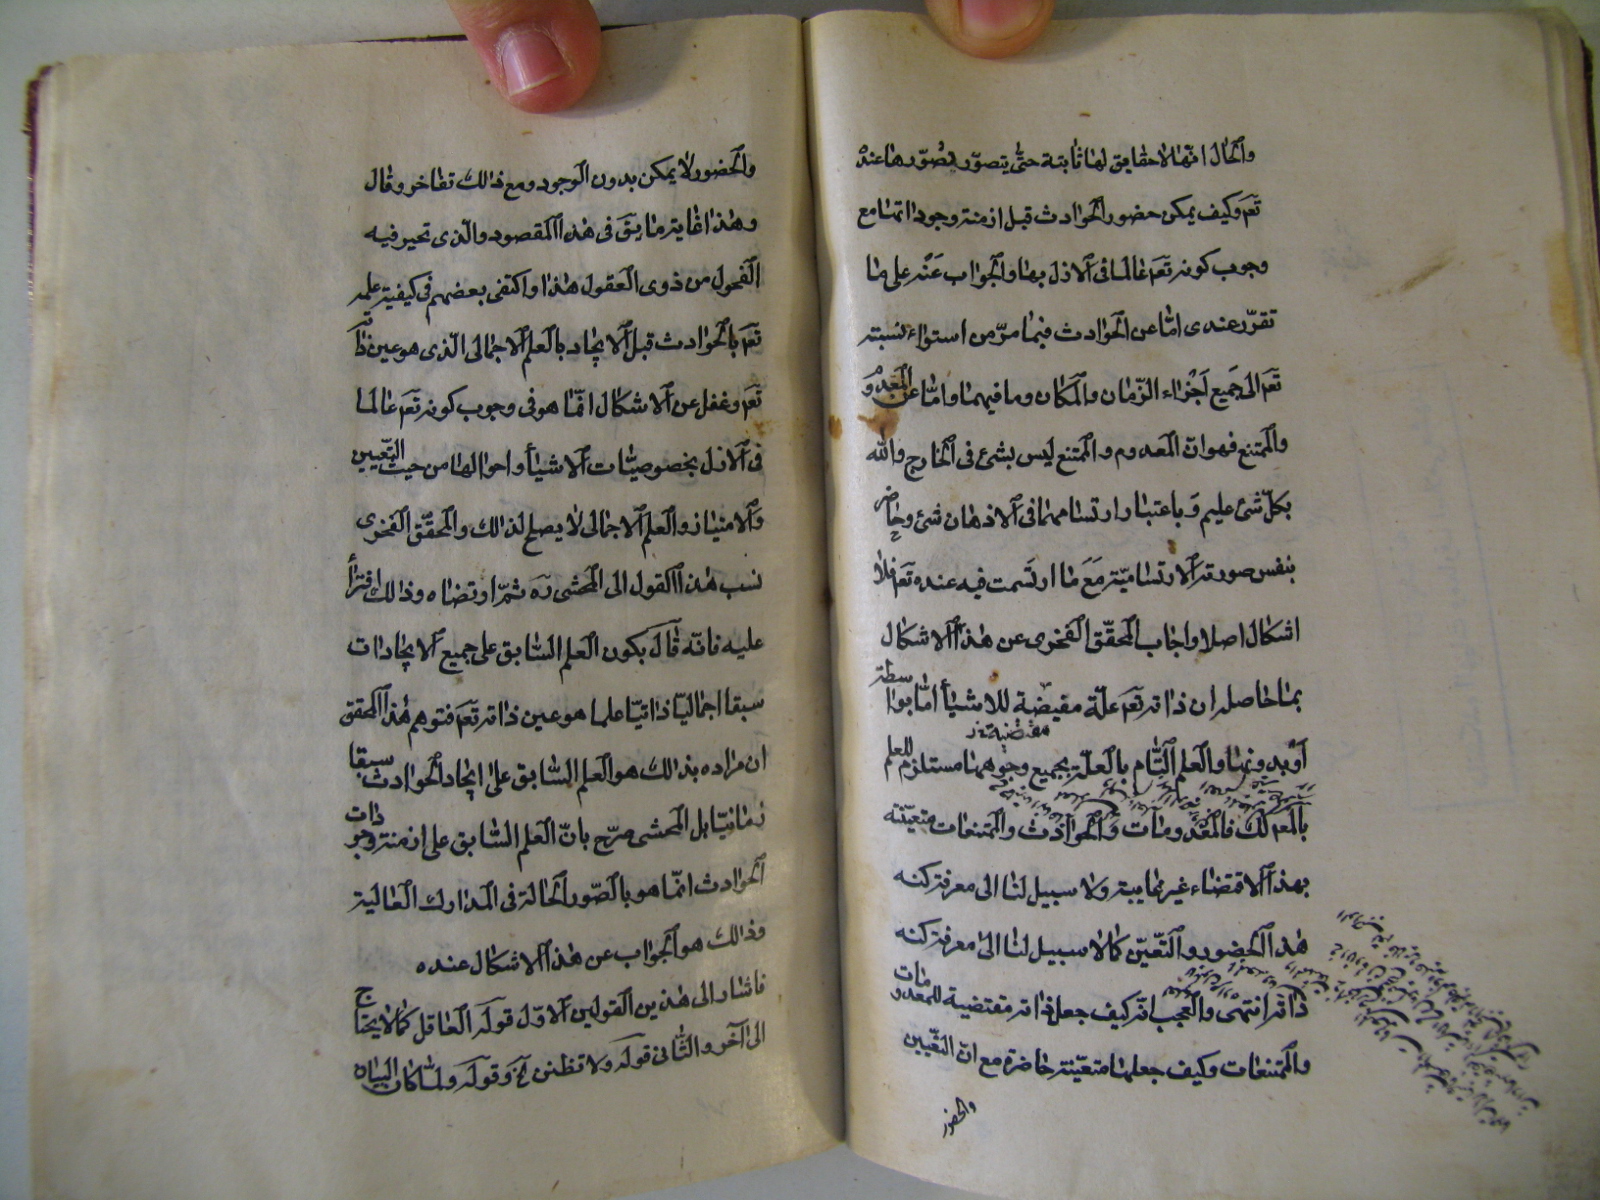 والحال انها لا حقايق لها ثابتة حتى يتصور تصورها عنده
تعم وكيف يمكن حضور الحوادث قبل ازمنة وجوداتها مع
وجوب كونه تعم عالما فى الازل بها والجواب عنه على ما
تقرر عندى اما عن الحوادث فبما مر من استواء نسبته
تعم الى جميع اجزاء الزمان والمكان وما فيهما واما عن المعدو
والممتنع فهو ان المعدوم والممتنع ليس بشئ فى الخارج والله
بكل شئ عليم وباعتبار ارتسامهما فى الاذهان شئ وحاضر
بنفس صورته الارتسامية مع ما ارتسمت فيه عنده تعم فلا
اشكال اصلا واجاب المحقق الفخرى عن هذا الاشكال
بما حاصله ان ذاته تعم علة مفيضة للاشيأ اما بواسطة
مقتضية
او بدونها والعلم التام بالعلة بجميع وجوهها مستلزم للعلم
بالمعلك فالمعدومات والحوادث والممتنعات متعينة
بهذا الاقتضاء غير غايبة ولا سبيل لنا الى معرفة كنه
هذا الحضور والتعين كما لا سبيل لنا الى معرفة كنه
ذاته انتهى والعجب انه كيف جعل ذاته مقتضية للمعدومات
والممتنعات وكيف جعلها متعينة حاضرة مع ان التعيين
والحضور
والحضور لا يمكن بدون الوجود ومع ذالك تفاخر وقال
وهذا غاية ما يق فى هذا المقصود والذى تحير فيه
الفحول من ذوى العقول هذا واكتفى بعضهم فى كيفية علمه
تعم بالحوادث قبل الايجاد بالعلم الاجمالى الذى هو عين ذاته
تعم وغفل عن الاشكال انما هو فى وجوب كونه تعم عالما
فى الازل بخصوصيات الاشيأ واحوالها من حيث التعيين
والامتياز والعلم الاجمالى لا يصلح لذالك والمحقق الفخرى
نسب هذا القول الى المحشى ره ثم ارتضاه وذالك افترأ
عليه فانه قال بكون العلم السابق على جميع الايجادات
سبقا اجماليا ذاتيا علما هو عين ذاته تعم فتوهم هذا المحقق
ان مراده بذالك هو العلم السابق على ايجاد الحوادث سبقا
زمانيا بل المحشى صرح بان العلم السابق على ازمنة وجودات
الحوادث انما هو بالصور الحالة فى المدارك العالية
وذالك هو الجواب عن هذا الاشكال عنده
فاشار الى هذين القولين الاول قوله العاقل كما لا يحتاج
الى آخر والثانى قوله ولا تظنن آخ وقوله ولما كان البياه